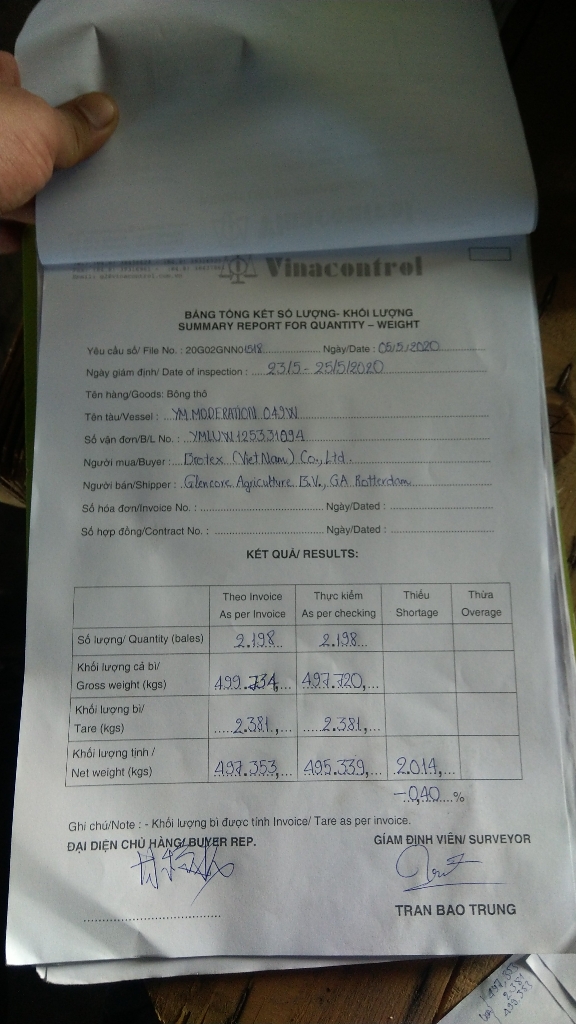 Vinacontrol
BẢNG TỔNG KẾT SỐ LƯỢNG- KHỐI LƯỢNG
SUMMARY REPORT FOR QUANTITY – WEIGHT
Yêu cầu số/ File No. : 20G02GNN01518 Ngày/Date : 05/5/2020
Ngày giám định/ Date of inspection : 23/5 - 25/5/2020
Tên hàng/Goods: Bông thô
Tên tàu/Vessel : YM MODERATION 049W
Số vận đơn/B/L No. : YMLUW125331094
Người mua/Buyer : Brotex (VietNam) Co., Ltd.
Người bán/Shipper : Glencore Agriculture B.V., GA Rotterdam
Số hóa đơn/Invoice No. : Ngày/Dated :
Số hợp đồng/Contract No. : Ngày/Dated :
KẾT QUẢ/ RESULTS:
Theo Invoice Thực kiểm Thiếu Thừa
As per Invoice As per checking Shortage Overage
Số lượng/ Quantity (bales) 2.198 2.198
Khối lượng cả bì/
Gross weight (kgs) 499.734, 497.720,
Khối lượng bì/
Tare (kgs) 2.381, 2.381,
Khối lượng tịnh /
Net weight (kgs) 497.353, 495.339, 2.014,
-0,40 %
Ghi chú/Note : - Khối lượng bì được tính Invoice/ Tare as per invoice.
ĐẠI DIỆN CHỦ HÀNG/ BUYER REP. GIÁM ĐỊNH VIÊN/ SURVEYOR
TRAN BAO TRUNG